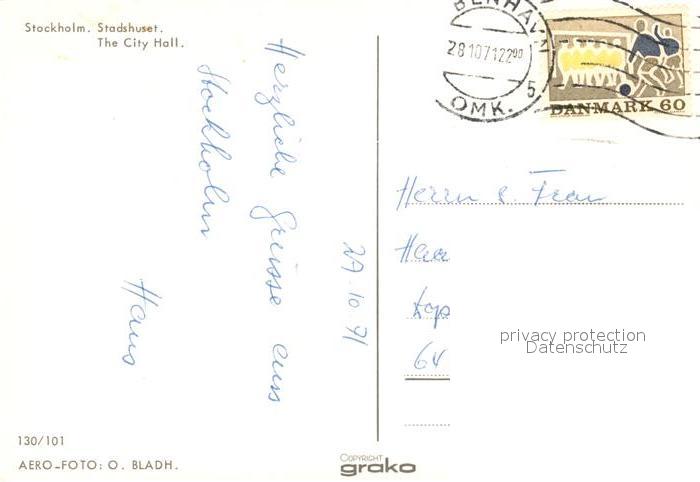 Stockholm. Stadshuset.
The City Hall.
27-10-71
Herzliche Grüsse aus
Stockholm
Hans
130/101
AERO-FOTO: O. BLADH.
COPYRIGHT
grako
BENHAVN
28 10 71 22 00
5
OMK.
DANMARK 60
Herrn &. Frau
Haa
kop
64
privacy protection
Datenschutz